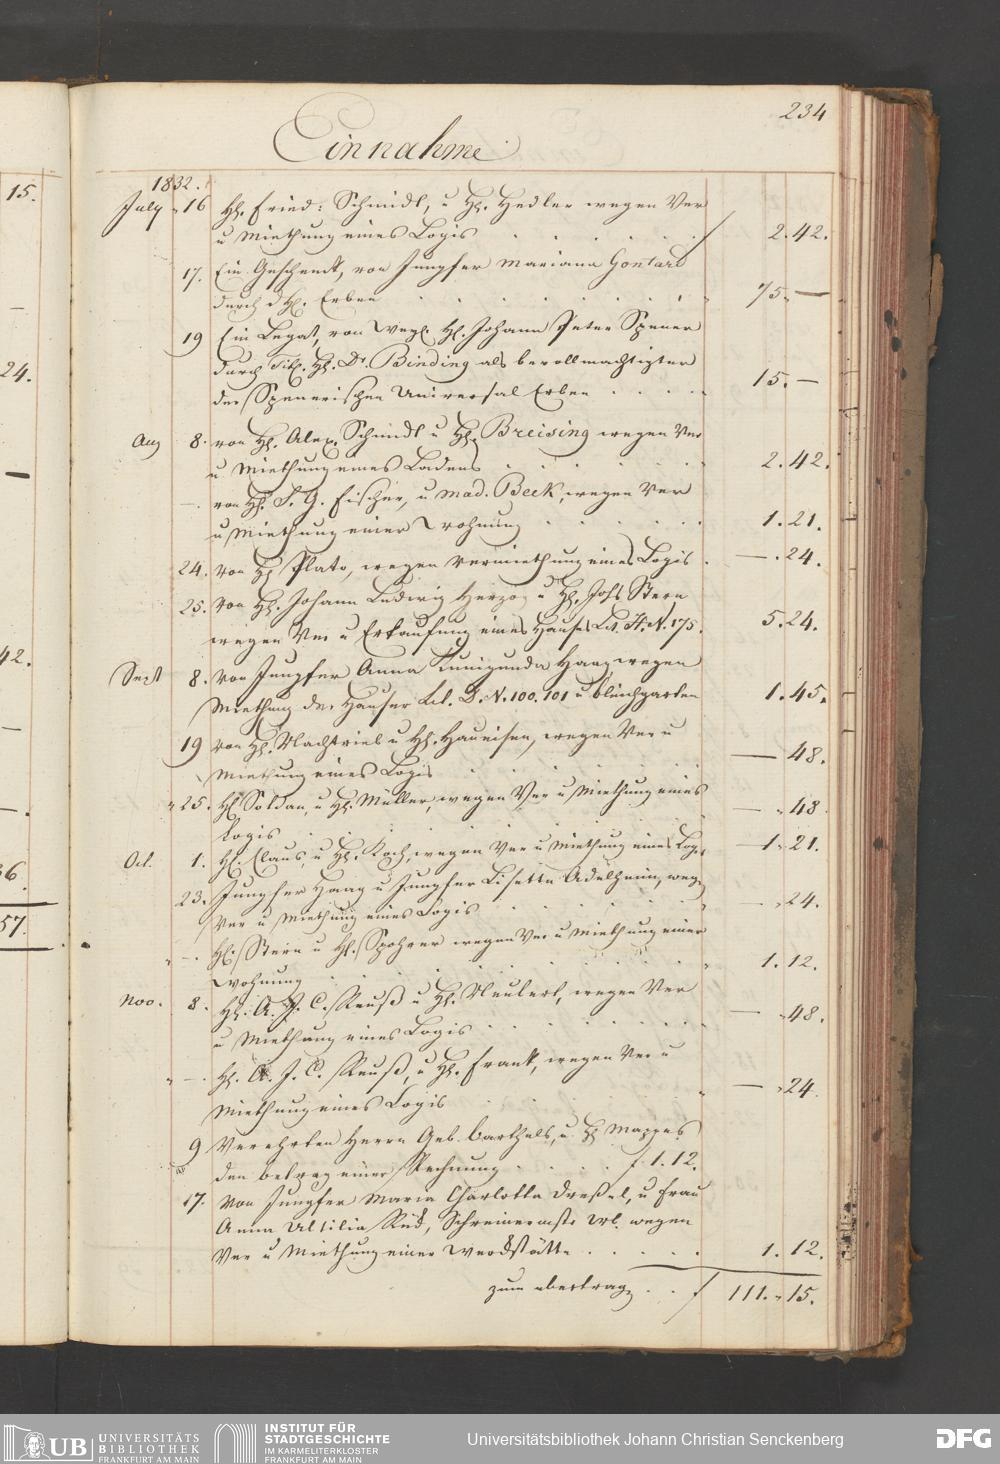 234
Einnahme
1832.
July 16 Hh. Fried: Schmidt, u Hh. Hedler wegen Ver
u Miethung eines Logis . . . . . f 2.42.
17. Ein Geschenk, von Jungfer Mariana Gontard
durch d H. Erben . . . . . 75. —
19 Ein Legat, von Hh. Johann Peter Spener
durch Tit. Hh. Dr. Binding als bevollmächtigter
der Spenerischen Universal Erben . . . . 15. —
Aug 8. von Hh. Alex. Schmidt u Hh. Breising wegen Ver
u Miethung eines Ladens . . . . . 2.42.
— von Hh. J. G. Fischer, u Mad. Beck, wegen Ver
u Miethung einer Wohnung . . . . . 1.21.
24. von Hh Plato, wegen Vermiethung eines Logis . — .24.
25. von Hh. Johann Ludwig Herzog u Hh. Johs Stern
wegen Ver u Erkaufung eines Hauses Lit. H. N. 175. 5.24.
Sept 8. von Jungfer Anna Kunigunda Haag wegen
Miethung der Häuser Lit. D. N. 100. 101 u Bleichgarten 1.45.
19 von Hh. Nachtrieb u Hh. Haueisen, wegen Ver u
Miethung eines Logis . . . . . — 48.
" 25. Hh. Soldan, u Hh. Müller, wegen Ver u Miethung eines
Logis . . . . . — "48
Oct. 1. Hh. Claus, u Hh. Koch, wegen Ver u Miethung eines Logis 1.21.
23. Jungfer Haag u Jungfer Lisette Adelheim, weg.
Ver u Miethung eines Logis . . . . . — "24.
" — Hh. Stern u Hh. Spohrer wegen Ver u Miethung einer
Wohnung . . . . . 1.12.
Nov. 8. Hh. A. J. C. Reuß u Hh. Neubert, wegen Ver
u Miethung eines Logis . . . . . — "48.
" — Hh. A. J. C. Reuß, u Hh. Frank, wegen Ver u
Miethung eines Logis . . . . . — "24.
9 Verehrten Herrn Geb. Barthels, u Hh Mappes
den betrag einer Rechnung . . . . f 1.12.
17. von Jungfer Maria Charlotta Dreßel, u Frau
Anna Rück, Schreinermstr. wegen
Ver u Miethung einer Werckstätte . . . . . 1.12.
zum übertrag . . f 111."15.
15.
24.
42.
36.
57.
UB UNIVERSITÄTS
BIBLIOTHEK
FRANKFURT AM MAIN
INSTITUT FÜR
STADTGESCHICHTE
IM KARMELITERKLOSTER
FRANKFURT AM MAIN
Universitätsbibliothek Johann Christian Senckenberg
DFG